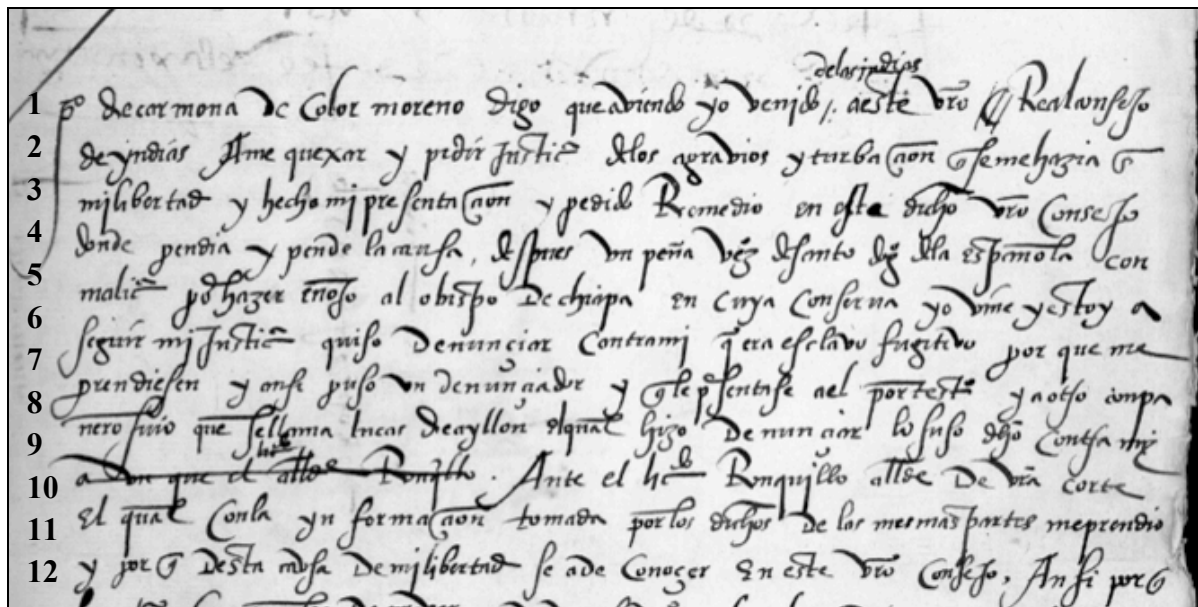 de las yndias
1 po de carmona de Color moreno digo que aviendo yo venido a este vro Real consejo
2 de yndias A me quexar y pedir Justica de los agravios y turbaçion q se me hazia en
3 mi libertad y hecho mi presentaçion y pedido Remedio en este dicho vro Consejo
4 donde pendia y pende la causa, despues un peña vezo de santo dgo de la española con
5 malica por hazer enojo al obispo de chiapa en cuya Conserva yo vine y estoy a
6 seguir mi Justica quiso denunçiar Contra mi q era esclavo fugitivo por que me
7 prendiesen y ansi puso un denunçiador y q le presentase a el por testo y a otro compa
8 nero suyo que se llama lucas de ayllon el qual hizo denunçiar lo suso dho Contra mi
9 que el allde Ronqillo. Ante el licdo Ronquillo allde De vra corte
10 El qual Con la ynformaçion tomada por los dichos de las mesmas partes me prendio
11 y por q Desta causa De mi libertad se a de Conoçer En este vro Consejo, Ansi por q
12